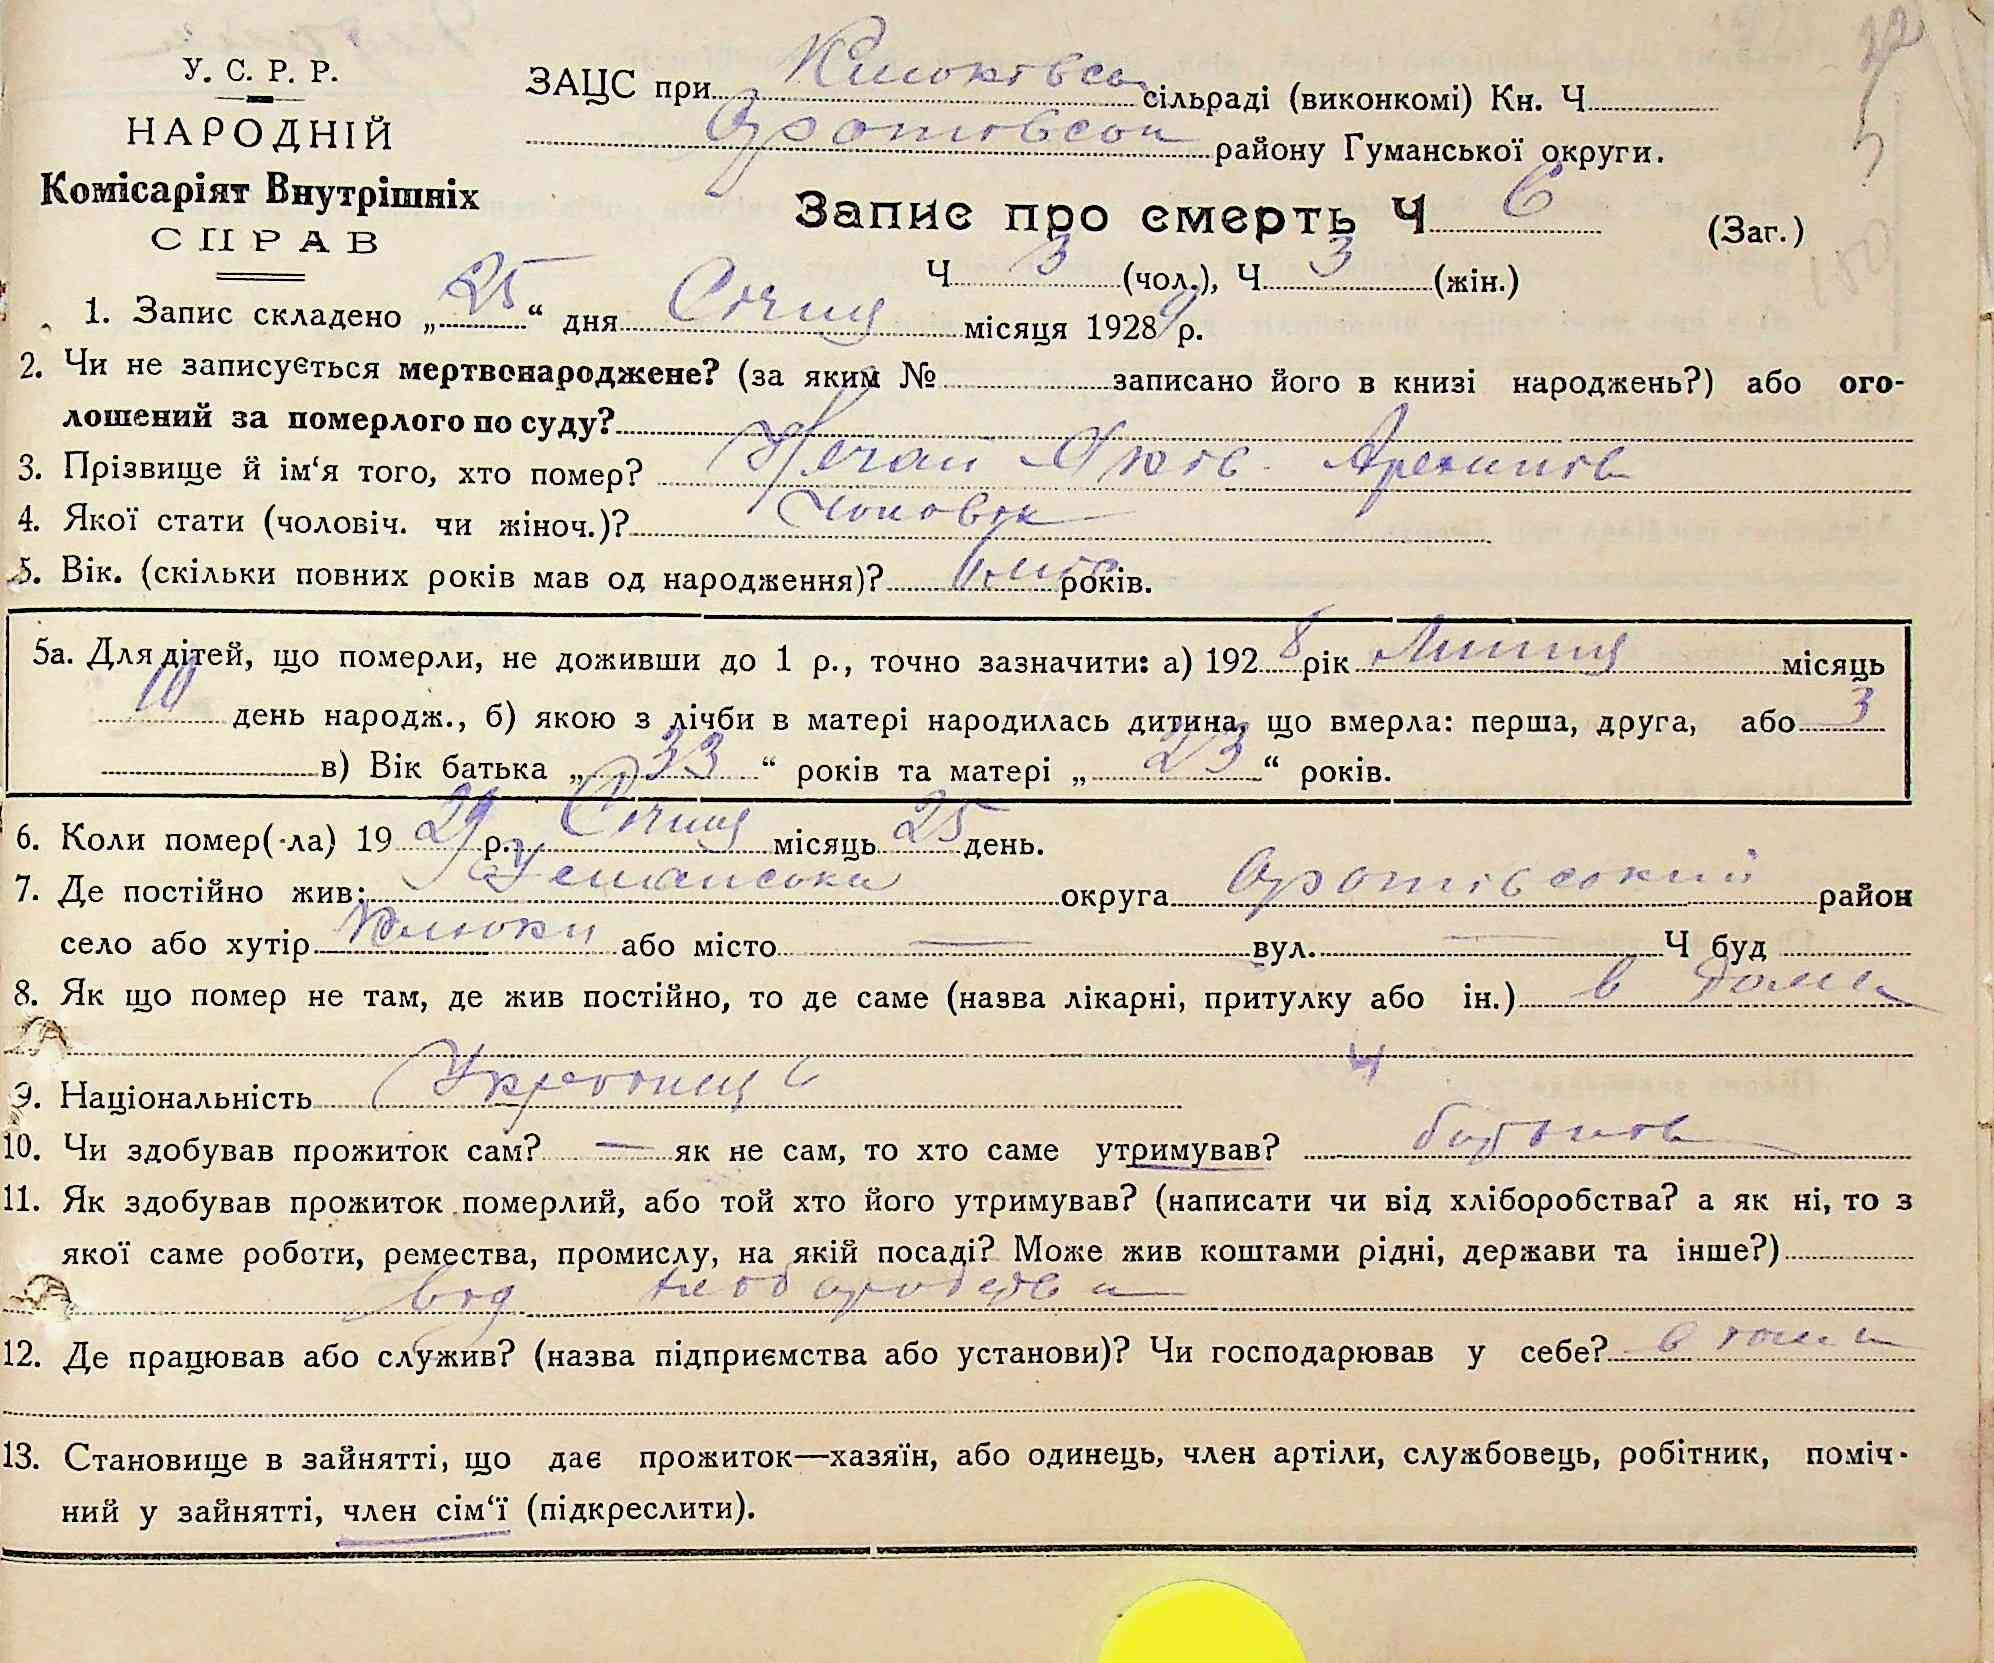 У. С. Р. Р.
НАРОДНІЙ
Комісаріят Внутрішніх
СПРАВ
ЗАЦС при Клюківській сільраді (виконкомі) Кн. Ч
Оратовської району Гуманської округи.
Запис про смерть Ч 6 (Заг.)
Ч 3 (чол.), Ч 3 (жін.)
1. Запис складено „25“ дня Січня місяця 1928 9 р.
2. Чи не записується мертвонароджене? (за яким № записано його в книзі народжень?) або ого-
лошений за померлого по суду?
3. Прізвище й ім‘я того, хто помер? Нечай
4. Якої стати (чоловіч. чи жіноч.)? Чоловік
5. Вік. (скільки повних років мав од народження)? років.
5а. Для дітей, що померли, не доживши до 1 р., точно зазначити: а) 1928 рік Липня місяць
10 день народж., б) якою з лічби в матері народилась дитина, що вмерла: перша, друга, або 3
в) Вік батька „33“ років та матері „23“ років.
6. Коли помер(-ла) 1929 р. Січня місяць 25 день.
7. Де постійно жив: Уманська округа Оратівський район
село або хутір Клюки або місто — вул. — Ч буд
8. Як що помер не там, де жив постійно, то де саме (назва лікарні, притулку або ін.) в дома
4
9. Національність Українець
10. Чи здобував прожиток сам? — як не сам, то хто саме утримував? батьків
11. Як здобував прожиток померлий, або той хто його утримував? (написати чи від хліборобства? а як ні, то з
якої саме роботи, ремества, промислу, на якій посаді? Може жив коштами рідні, держави та інше?)
від хліборобства
12. Де працював або служив? (назва підприємства або установи)? Чи господарював у себе? в дома
13. Становище в зайнятті, що дає прожиток—хазяїн, або одинець, член артіли, службовець, робітник, поміч-
ний у зайнятті, член сім‘ї (підкреслити).